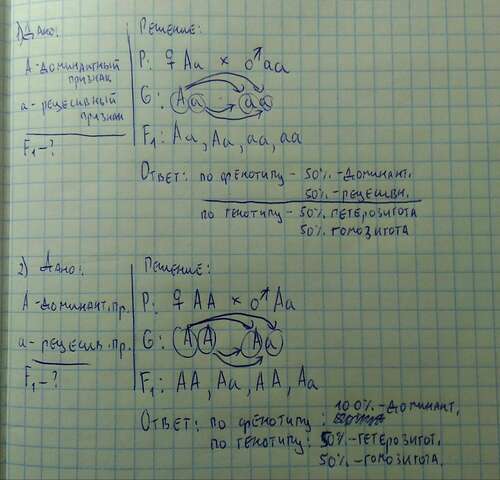 1) Дано:
А-доминантный
признак
а-рецесивный
признак
F₁-?
Решение:
P: ♀ Aa × ♂ aa
G: A a a a
F₁: Aa, Aa, aa, aa
Ответ: по фенотипу - 50% -доминант.
50% -рецесивн.
по генотипу - 50% гетерозигота
50% гомозигота
2) Дано:
А-доминант.пр.
а-рецесив.пр.
F₁-?
Решение:
P: ♀ AA × ♂ Aa
G: A A A a
F₁: AA, Aa, AA, Aa
Ответ: по фенотипу: 100% -доминант.
по генотипу: 50% -гетерозигот.
50% -гомозигота.